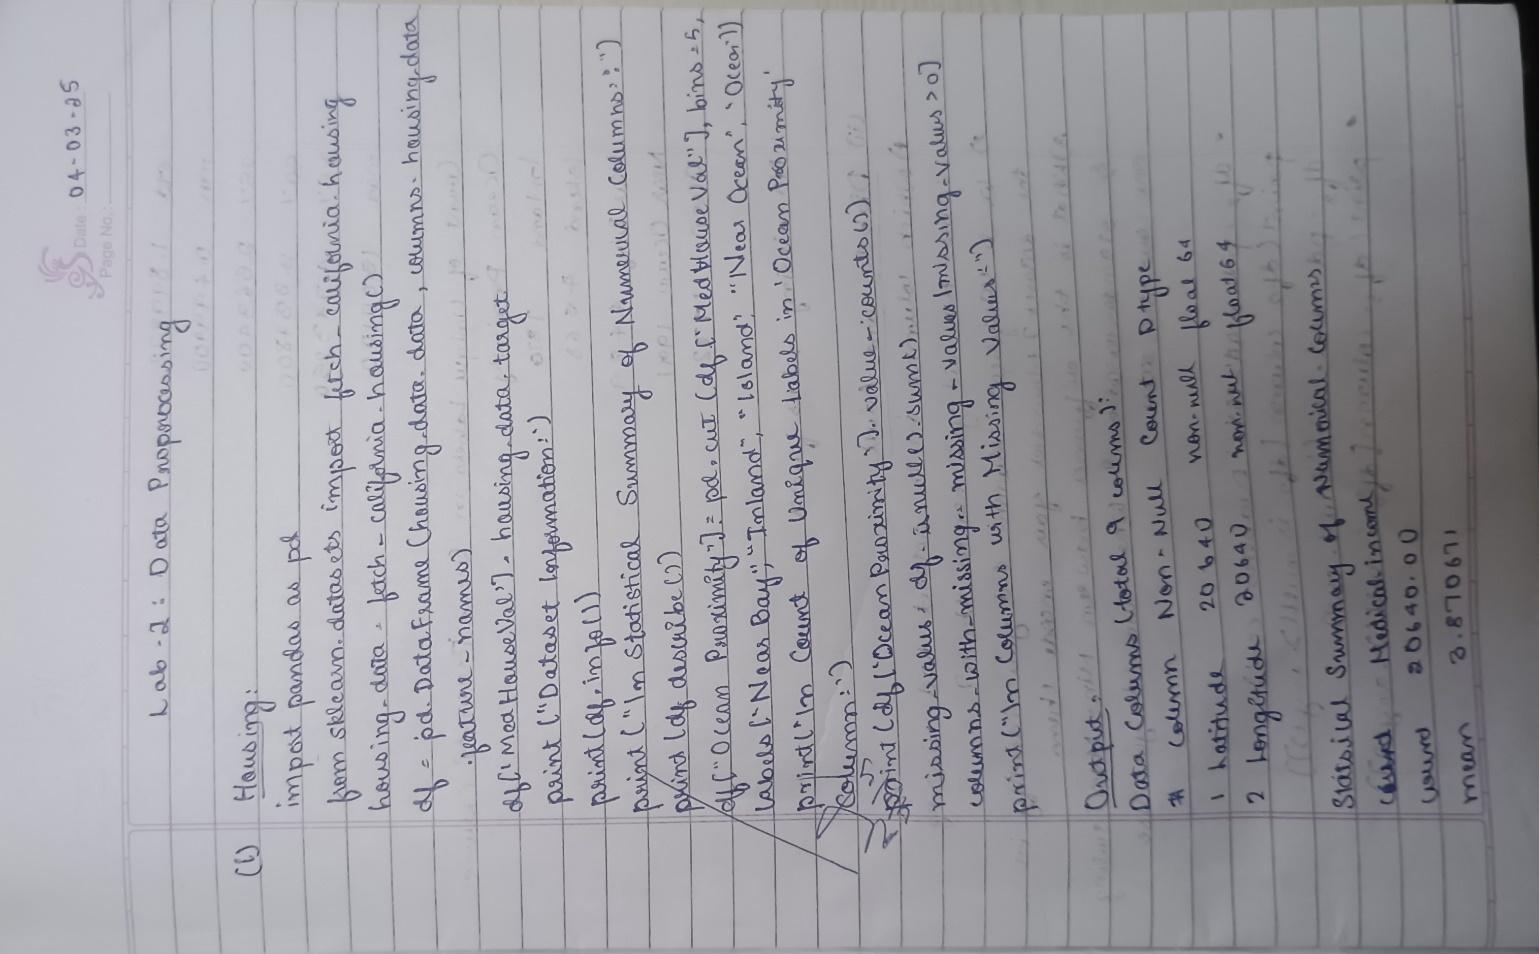 Date: 04-03-25
Page No.:
Lab-2: Data Proporocessing
(i) Housing:
import pandas as pd
from sklearn.datasets import fetch-california-housing
housing-data = fetch-california-housing()
df = pd.DataFrame(housing.data.data, coumns-housing.data
.feature-names)
df['MedHouseVal'] = housing.data.target
print ("Dataset Information:")
print(df.info())
print ("In Statistical Summary of Numerical Columns::")
print (df describe())
df["Ocean Proximity"] = pd.cut (df["MedHouseVal"], bins=5,
labels["Near Bay", "Inland", "Island", "Near Ocean", "Ocean"])
print("In Count of Unique labels in 'Ocean Proximity'
Column:")
print (df['Ocean Proximity'].value-counts())
missing-values = df-isnull().sum()
columns-with-missing = missing-values[missing-values>0]
print("In Columns with Missing Values:")
Output:
Data Columns (total 9 coloums):
# Column Non-Null Count Dtype
1 Latitude 20640 non-null float 64
2 Longitude 20640 non-null float 64
Statsical Summary of Numerical Columns
Medical income
count 20640.00
mean 3.870671